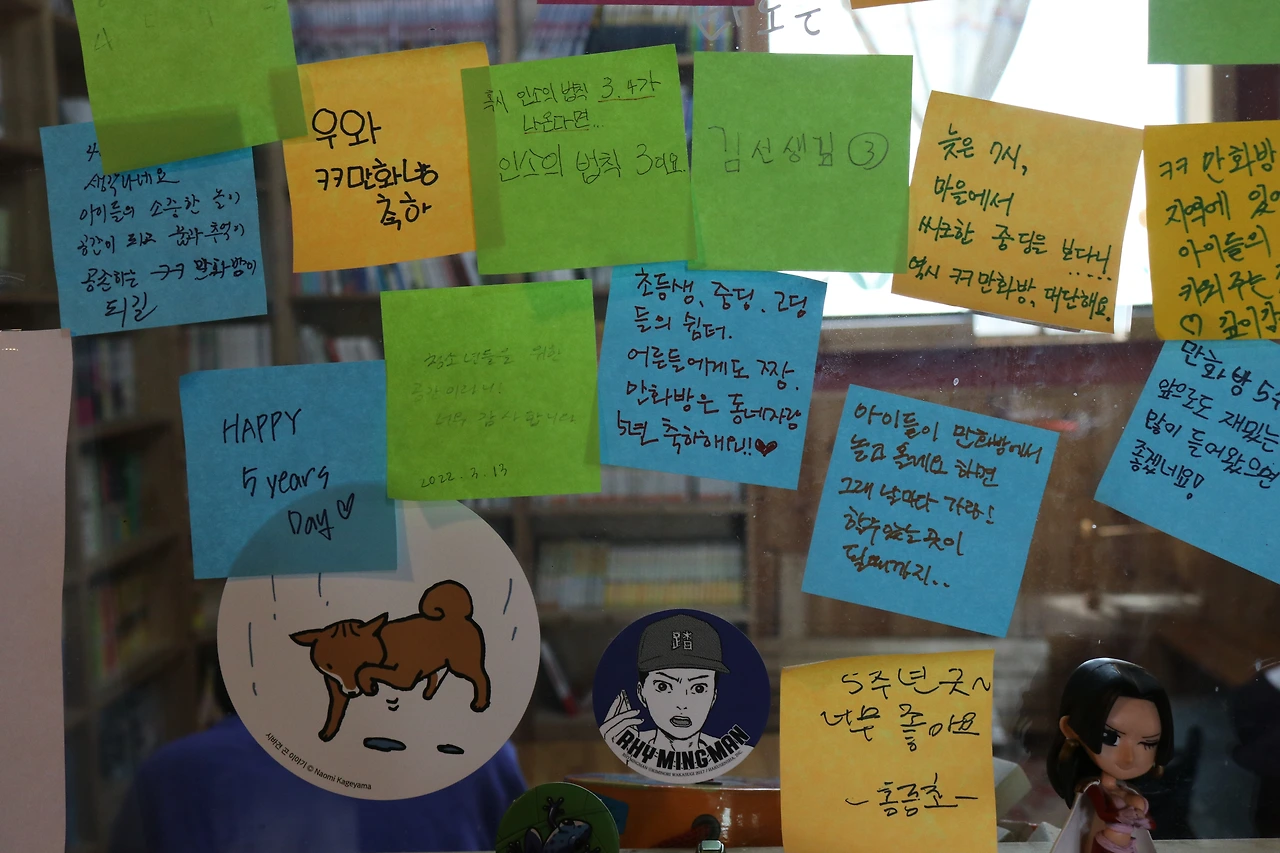 우와
ㅋㅋ만화방
축하
혹시 인소의 법칙 3.4가
나온다면...
인소의 법칙 3 더요
김선생님 ③
늦은 7시,
마을에서
씨꺼한 중딩을 보다니
역시 ㅋㅋ만화방, 대단해요.
ㅋㅋ 만화방
지역에 있어
아이들의
키워 주는
♡ 깊이
생각나네요
아이들의 소중한 놀이
공간이 되고 꿈과 추억이
공존하는 ㅋㅋ 만화방이
되길
청소년들을 위한
공간이라니!
너무 감사합니다
2022.3.13
초등생, 중딩, 고딩
들의 쉼터.
어른들에게도 짱.
만화방은 동네자랑
5년 축하해요!!♥
HAPPY
5 years
Day ♡
아이들이 만화방에서
놀고 올게요 하면
그래 날마다 가랑!
할수있는 곳이
될때까지..
만화방 5주
앞으로도 재밌는
많이 들어왔으면
좋겠네요!
5주년 굿~
너무 좋아요
~홍금초~
시바견 곤 이야기 © Naomi Kageyama
踏
RHYMINGMAN